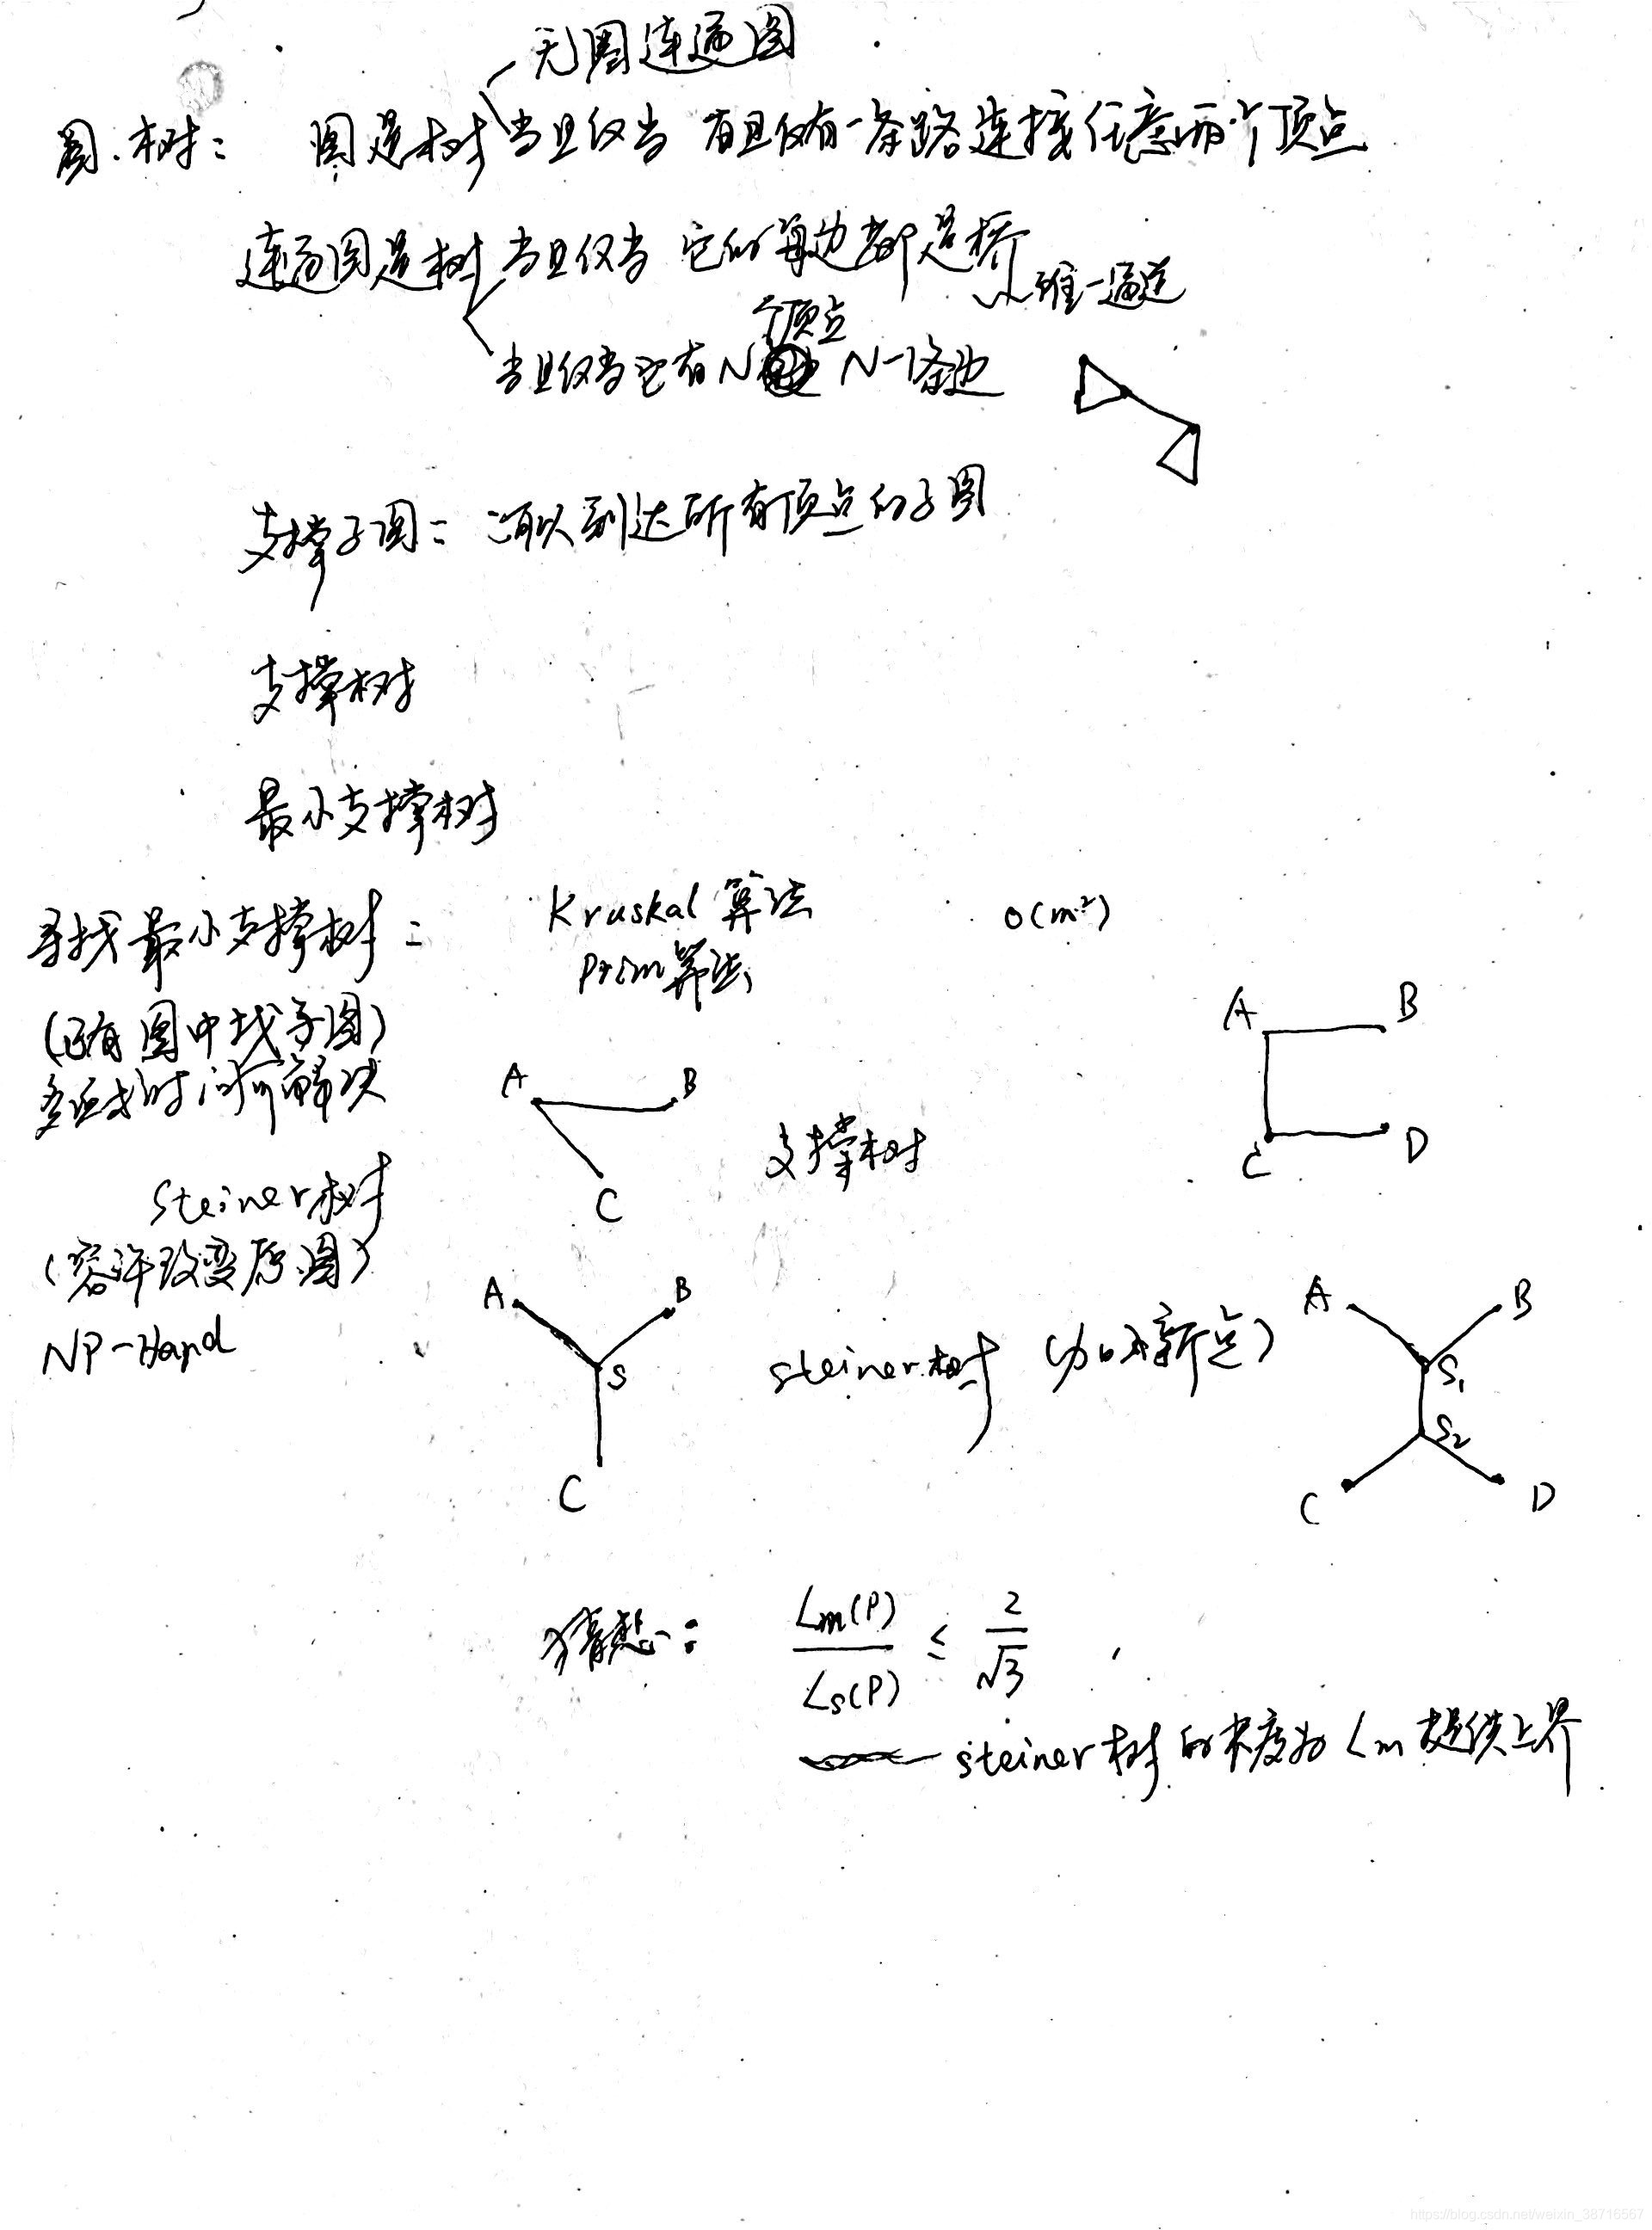 无圈连通图
图.树: 图是树 当且仅当 有且仅有一条路连接任意两个顶点
连通图是树 当且仅当 它的每边都是桥
唯一通道
个顶点
当且仅当它有N N-1条边
支撑子图: 可以到达所有顶点的子图
支撑树
最小支撑树
寻找最小支撑树: Kruskal 算法 O(m²)
Prim算法
(已有图中找子图)
多项式时间可解决
A B
C
支撑树
A B
C D
steiner树
(容许改变原图)
NP-Hard
A B
S
C
steiner树 (加入新点)
A B
S₁
S₂
C D
猜想: Lm(P)/Ls(P) ≤ 2/√3
steiner树的长度为Lm提供上界
https://blog.csdn.net/weixin_38716567